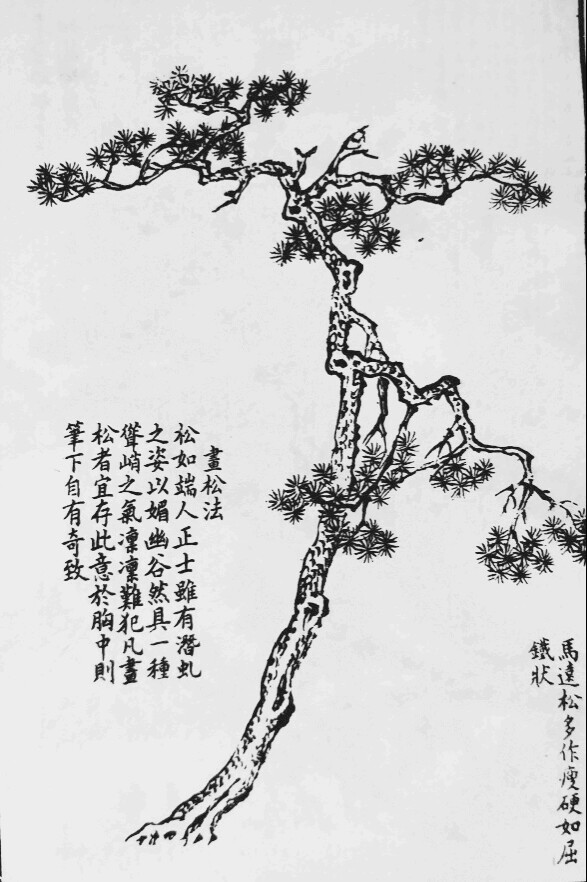 畫松法
松如端人正士雖有潛虬
之姿以媚幽谷然具一種
聳峭之氣凜凜難犯凡畫
松者宜存此意於胸中則
筆下自有奇致
馬遠松多作瘦硬如屈
鐵狀